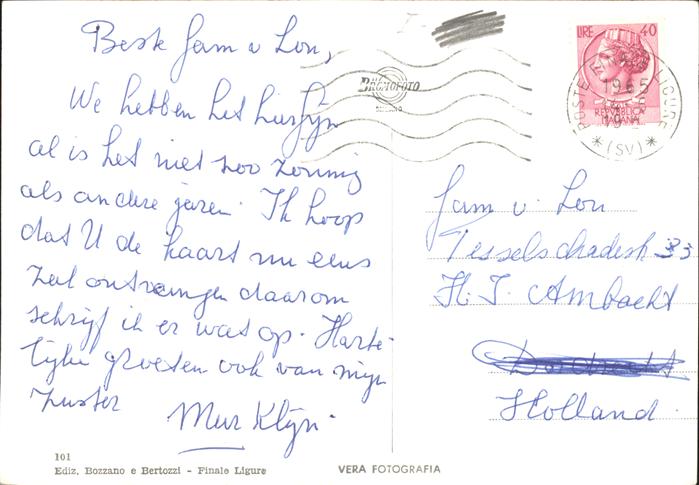 Beste fam v Lon,
We hebben het hier fijn
al is het niet zoo zonnig
als andere jaren. Ik hoop
dat U de kaart nu eens
zal ontvangen daarom
schrijf ik er wat op. Harte-
lijke groeten ook van mijn
zuster
Mur Klijn.
BROMOFOTO
MILANO
LIRE 40
REPVBBLICA
ITALIANA
POSTE
LIGURE
1965
19
*(SV)*
fam v. Lon
Tesselschadestr 33
H. I. Ambacht
Dordrecht
Holland
101
Ediz. Bozzano e Bertozzi - Finale Ligure
VERA FOTOGRAFIA